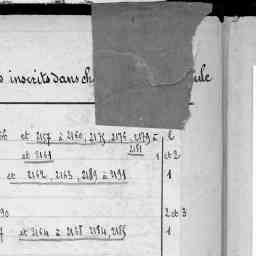 inscrits dans ch ule
et 2157 à 2160, 2175, 2176, 2179 à 2181 2
et 2161 1 et 2
et 2162, 2163, 2189 à 2191 1
90 2 et 3
7 et 2164 à 2168 2184, 2185 1